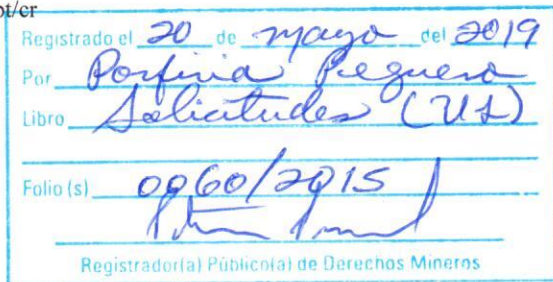 pt/cr
Registrado el 20 de mayo del 2019
Por Porfiria Peguero
Libro Solicitudes (UL)
Folio (s) 0060/2015
Registrador(a) Público(a) de Derechos Mineros